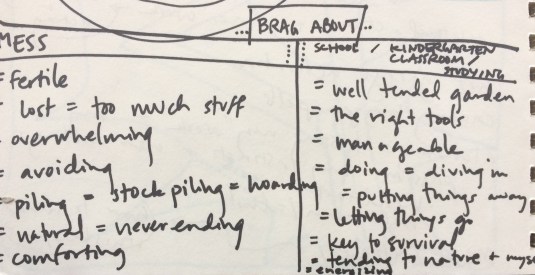 ...BRAG ABOUT..
MESS
= fertile
lost = too much stuff
= overwhelming
= avoiding
piling = stock piling = hoarding
= natural = never ending
= comforting
SCHOOL / KINDERGARTEN
CLASSROOM /
STUDYING
= well tended garden
= the right tools
= manageable
= doing = diving in
= putting things away
= letting things go
= key to survival
= tending to nature + myse
= energizing